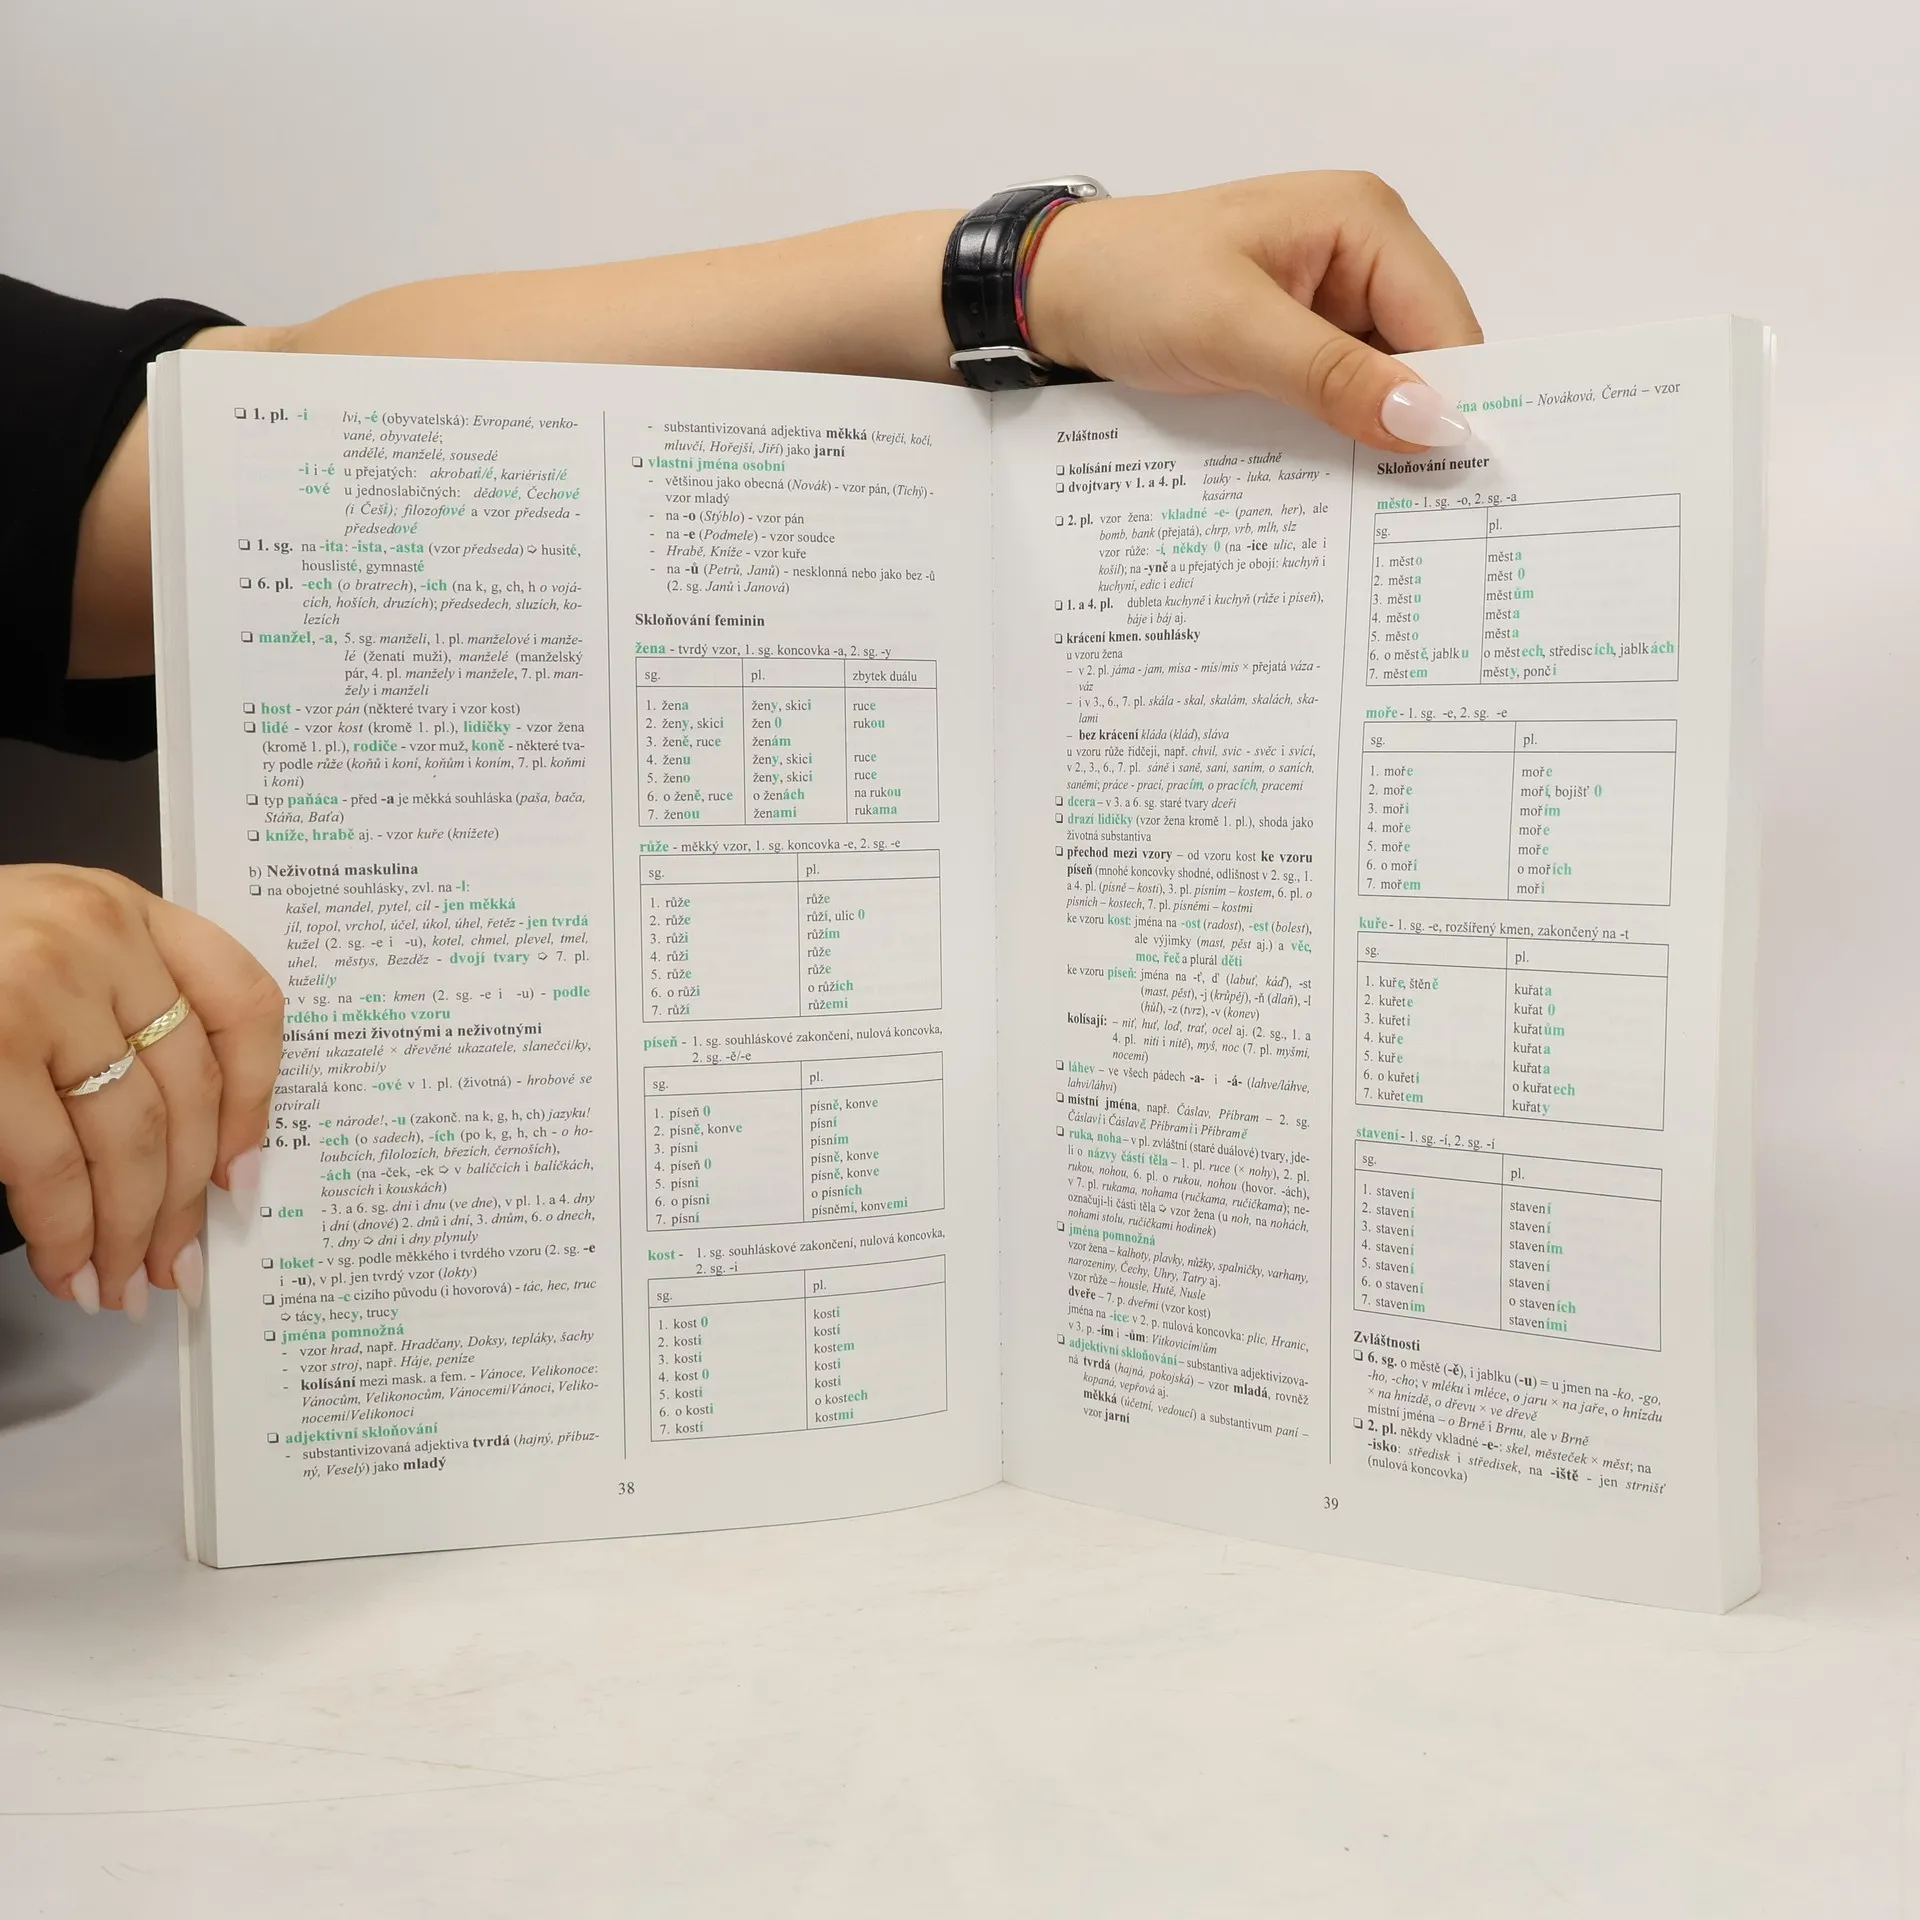 ❑ 1. pl. -i lvi, -é (obyvatelská): Evropané, venko-
vané, obyvatelé;
andělé, manželé, sousedé
-i i -é u přejatých: akrobati/é, kariéristi/é
-ové u jednoslabičných: dědové, Čechové
(i Češi); filozofové a vzor předseda -
předsedové
❑ 1. sg. na -ita: -ista, -asta (vzor předseda) ➪ husité,
houslisté, gymnasté
❑ 6. pl. -ech (o bratrech), -ích (na k, g, ch, h o vojá-
cích, hoších, druzích); předsedech, sluzích, ko-
lezích
❑ manžel, -a, 5. sg. manželi, 1. pl. manželové i manže-
lé (ženatí muži), manželé (manželský
pár, 4. pl. manžely i manžele, 7. pl. man-
žely i manželi
❑ host - vzor pán (některé tvary i vzor kost)
❑ lidé - vzor kost (kromě 1. pl.), lidičky - vzor žena
(kromě 1. pl.), rodiče - vzor muž, koně - některé tva-
ry podle růže (koňů i koní, koňům i koním, 7. pl. koňmi
i koni)
❑ typ paňáca - před -a je měkká souhláska (paša, bača,
Stáňa, Baťa)
❑ kníže, hrabě aj. - vzor kuře (knížete)
b) Neživotná maskulina
❑ na obojetné souhlásky, zvl. na -l:
kašel, mandel, pytel, cíl - jen měkká
jíl, topol, vrchol, účel, úkol, úhel, řetěz - jen tvrdá
kužel (2. sg. -e i -u), kotel, chmel, plevel, tmel,
uhel, městys, Bezděz - dvojí tvary ➪ 7. pl.
kuželi/y
v sg. na -en: kmen (2. sg. -e i -u) - podle
rdého i měkkého vzoru
olísání mezi životnými a neživotnými
řevění ukazatelé × dřevěné ukazatele, slanečci/ky,
bacili/y, mikrobi/y
zastaralá konc. -ové v 1. pl. (životná) - hrobové se
otvírali
5. sg. -e národe!, -u (zakonč. na k, g, h, ch) jazyku!
6. pl. -ech (o sadech), -ích (po k, g, h, ch - o ho-
loubcích, filolozích, březích, černoších),
-ách (na -ček, -ek ➪ v balíčcích i balíčkách,
kouscích i kouskách)
❑ den - 3. a 6. sg. dni i dnu (ve dne), v pl. 1. a 4. dny
i dni (dnové) 2. dnů i dní, 3. dnům, 6. o dnech,
7. dny ➪ dni i dny plynuly
❑ loket - v sg. podle měkkého i tvrdého vzoru (2. sg. -e
i -u), v pl. jen tvrdý vzor (lokty)
❑ jména na -c cizího původu (i hovorová) - tác, hec, truc
➪ tácy, hecy, trucy
❑ jména pomnožná
- vzor hrad, např. Hradčany, Doksy, tepláky, šachy
- vzor stroj, např. Háje, peníze
- kolísání mezi mask. a fem. - Vánoce, Velikonoce:
Vánocům, Velikonocům, Vánocemi/Vánoci, Veliko-
nocemi/Velikonoci
❑ adjektivní skloňování
- substantivizovaná adjektiva tvrdá (hajný, příbuz-
ný, Veselý) jako mladý
- substantivizovaná adjektiva měkká (krejčí, kočí,
mluvčí, Hořejší, Jiří) jako jarní
❑ vlastní jména osobní
- většinou jako obecná (Novák) - vzor pán, (Tichý) -
vzor mladý
- na -o (Stýblo) - vzor pán
- na -e (Podmele) - vzor soudce
- Hrabě, Kníže - vzor kuře
- na -ů (Petrů, Janů) - nesklonná nebo jako bez -ů
(2. sg. Janů i Janová)
Skloňování feminin
žena - tvrdý vzor, 1. sg. koncovka -a, 2. sg. -y
sg. pl. zbytek duálu
1. žena ženy, skici ruce
2. ženy, skici žen 0 rukou
3. ženě, ruce ženám
4. ženu ženy, skici ruce
5. ženo ženy, skici ruce
6. o ženě, ruce o ženách na rukou
7. ženou ženami rukama
růže - měkký vzor, 1. sg. koncovka -e, 2. sg. -e
sg. pl.
1. růže růže
2. růže růží, ulic 0
3. růži růžím
4. růži růže
5. růže růže
6. o růži o růžích
7. růží růžemi
píseň - 1. sg. souhláskové zakončení, nulová koncovka,
2. sg. -ě/-e
sg. pl.
1. píseň 0 písně, konve
2. písně, konve písní
3. písni písním
4. píseň 0 písně, konve
5. písni písně, konve
6. o písni o písních
7. písní písněmi, konvemi
kost - 1. sg. souhláskové zakončení, nulová koncovka,
2. sg. -i
sg. pl.
1. kost 0 kosti
2. kosti kostí
3. kosti kostem
4. kost 0 kosti
5. kosti kosti
6. o kosti o kostech
7. kostí kostmi
38
Zvláštnosti
❑ kolísání mezi vzory studna - studně
❑ dvojtvary v 1. a 4. pl. louky - luka, kasárny -
kasárna
❑ 2. pl. vzor žena: vkladné -e- (panen, her), ale
bomb, bank (přejatá), chrp, vrb, mlh, slz
vzor růže: -í, někdy 0 (na -ice ulic, ale i
košil); na -yně a u přejatých je obojí: kuchyň i
kuchyní, edic i edicí
❑ 1. a 4. pl. dubleta kuchyně i kuchyň (růže i píseň),
báje i báj aj.
❑ krácení kmen. souhlásky
u vzoru žena
– v 2. pl. jáma - jam, mísa - mis/mís × přejatá váza -
váz
– i v 3., 6., 7. pl. skála - skal, skalám, skalách, ska-
lami
– bez krácení kláda (klád), sláva
u vzoru růže řidčeji, např. chvil, svic - svěc i svící,
v 2., 3., 6., 7. pl. sáně i saně, saní, saním, o saních,
saněmi; práce - prací, pracím, o pracích, pracemi
❑ dcera – v 3. a 6. sg. staré tvary dceři
❑ drazí lidičky (vzor žena kromě 1. pl.), shoda jako
životná substantiva
❑ přechod mezi vzory – od vzoru kost ke vzoru
píseň (mnohé koncovky shodné, odlišnost v 2. sg., 1.
a 4. pl. (písně – kosti), 3. pl. písním – kostem, 6. pl. o
písních – kostech, 7. pl. písněmi – kostmi
ke vzoru kost: jména na -ost (radost), -est (bolest),
ale výjimky (mast, pěst aj.) a věc,
moc, řeč a plurál děti
ke vzoru píseň: jména na -ť, ď (labuť, káď), -st
(mast, pěst), -j (krůpěj), -ň (dlaň), -l
(hůl), -z (tvrz), -v (konev)
kolísají: – niť, huť, loď, trať, ocel aj. (2. sg., 1. a
4. pl. niti i nitě), myš, noc (7. pl. myšmi,
nocemi)
❑ láhev – ve všech pádech -a- i -á- (lahve/láhve,
lahvi/láhvi)
❑ místní jména, např. Čáslav, Příbram – 2. sg.
Čáslavi i Čáslavě, Příbrami i Příbramě
❑ ruka, noha – v pl. zvláštní (staré duálové) tvary, jde-
li o názvy částí těla – 1. pl. ruce (× nohy), 2. pl.
rukou, nohou, 6. pl. o rukou, nohou (hovor. -ách),
v 7. pl. rukama, nohama (ručkama, ručičkama); ne-
označují-li části těla ➪ vzor žena (u noh, na nohách,
nohami stolu, ručičkami hodinek)
❑ jména pomnožná
vzor žena – kalhoty, plavky, nůžky, spalničky, varhany,
narozeniny, Čechy, Uhry, Tatry aj.
vzor růže – housle, Hutě, Nusle
dveře – 7. p. dveřmi (vzor kost)
jména na -ice: v 2. p. nulová koncovka: plic, Hranic,
v 3. p. -ím i -ům: Vítkovicím/ům
❑ adjektivní skloňování – substantiva adjektivizova-
ná tvrdá (hajná, pokojská) – vzor mladá, rovněž
kopaná, vepřová aj.
měkká (účetní, vedoucí) a substantivum paní –
vzor jarní
éna osobní – Nováková, Černá – vzor
Skloňování neuter
město - 1. sg. -o, 2. sg. -a
sg. pl.
1. město města
2. města měst 0
3. městu městům
4. město města
5. město města
6. o městě, jablku o městech, střediscích, jablkách
7. městem městy, ponči
moře - 1. sg. -e, 2. sg. -e
sg. pl.
1. moře moře
2. moře moří, bojišť 0
3. moři mořím
4. moře moře
5. moře moře
6. o moři o mořích
7. mořem moři
kuře - 1. sg. -e, rozšířený kmen, zakončený na -t
sg. pl.
1. kuře, štěně kuřata
2. kuřete kuřat 0
3. kuřeti kuřatům
4. kuře kuřata
5. kuře kuřata
6. o kuřeti o kuřatech
7. kuřetem kuřaty
stavení - 1. sg. -í, 2. sg. -í
sg. pl.
1. stavení stavení
2. stavení stavení
3. stavení stavením
4. stavení stavení
5. stavení stavení
6. o stavení o staveních
7. stavením staveními
Zvláštnosti
❑ 6. sg. o městě (-ě), i jablku (-u) = u jmen na -ko, -go,
-ho, -cho; v mléku i mléce, o jaru × na jaře, o hnízdu
× na hnízdě, o dřevu × ve dřevě
místní jména – o Brně i Brnu, ale v Brně
❑ 2. pl. někdy vkladné -e-: skel, městeček × měst; na
-isko: středisk i středisek, na -iště - jen strnišť
(nulová koncovka)
39